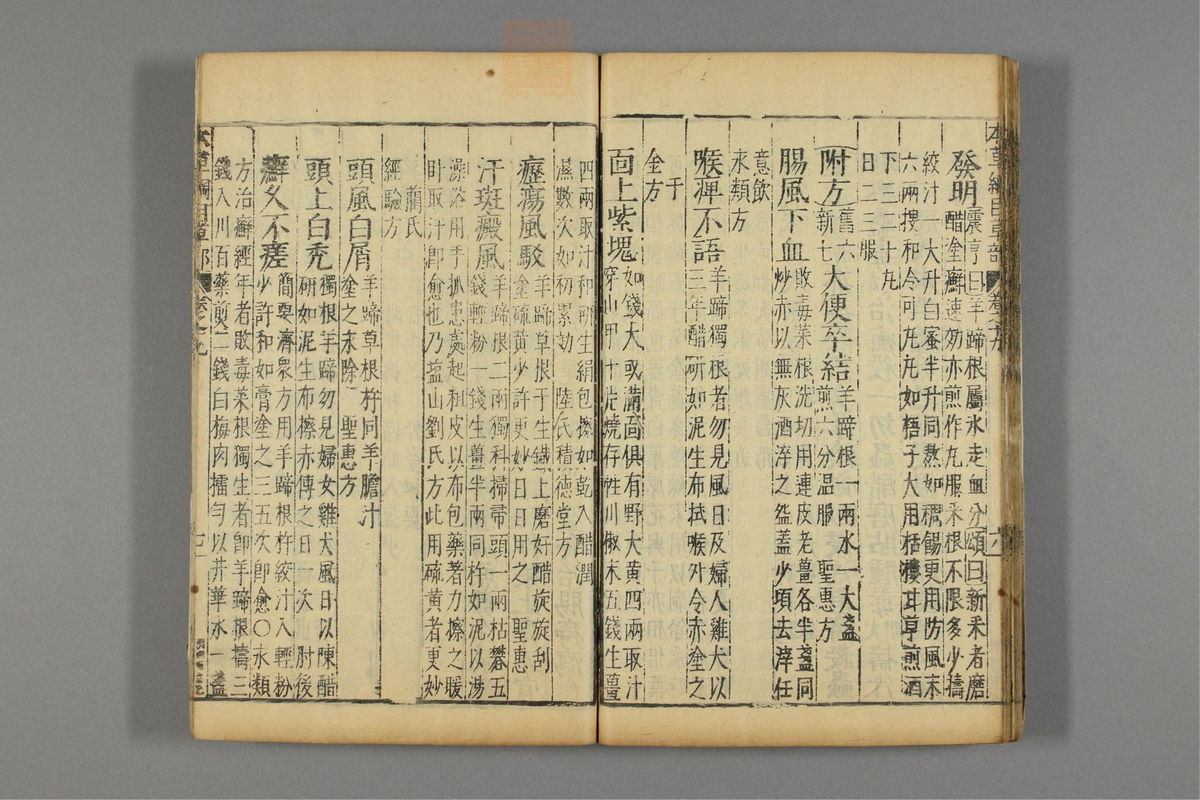 本草綱目草部
發明震亨曰羊蹄根屬水走血分頌曰新采者磨
醋塗癬速効亦煎作丸服采根不限多少擣
絞汁一大升白蜜半升同熬如稠餳更用防風末
六兩捜和令可丸丸如梧子大用栝樓甘草煎酒
下三二十丸
日二三服
附方舊六新七大便卒結羊蹄根一兩水一大盞
煎六分温服 聖惠方
腸風下血敗毒菜根洗切用連皮老薑各半盞同
炒赤以無灰酒淬之盌蓋少頃去滓任
意飲
永類方
喉㾽不語羊蹄獨根者勿見風日及婦人雞犬以
三年醋研如泥生布拭喉外令赤塗之
千
金方
面上紫塊如錢大或滿面俱有野大黃四兩取汁
穿山甲十片燒存性川椒末五錢生薑
四兩取汁和研生絹包擦如乾入醋潤
濕數次如初累効 陸氏積德堂方
癧瘍風駁羊蹄草根于生鐵上磨好醋旋旋刮
塗硫黃少許更妙日日用之 聖惠
汗斑癜風羊蹄根二兩獨科掃帚頭一兩枯礬五
錢輕粉一錢生薑半兩同杵如泥以湯
澡浴用手抓患處起粗皮以布包藥著力擦之暖
臥取汗即愈也乃塩山劉氏方此用硫黃者更妙
藺氏
經驗方
頭風白屑羊蹄草根杵同羊膽汁
塗之永除 聖惠方
頭上白禿獨根羊蹄勿見婦女雞犬風日以陳醋
研如泥生布擦赤傅之日一次 肘後
癬久不瘥簡要濟衆方用羊蹄根杵絞汁入輕粉
少許和如膏塗之三五次即愈○永類
方治癬經年者敗毒菜根獨生者即羊蹄根擣三
錢入川百藥煎二錢白梅肉擂勻以井華水一盞
本草綱目草部